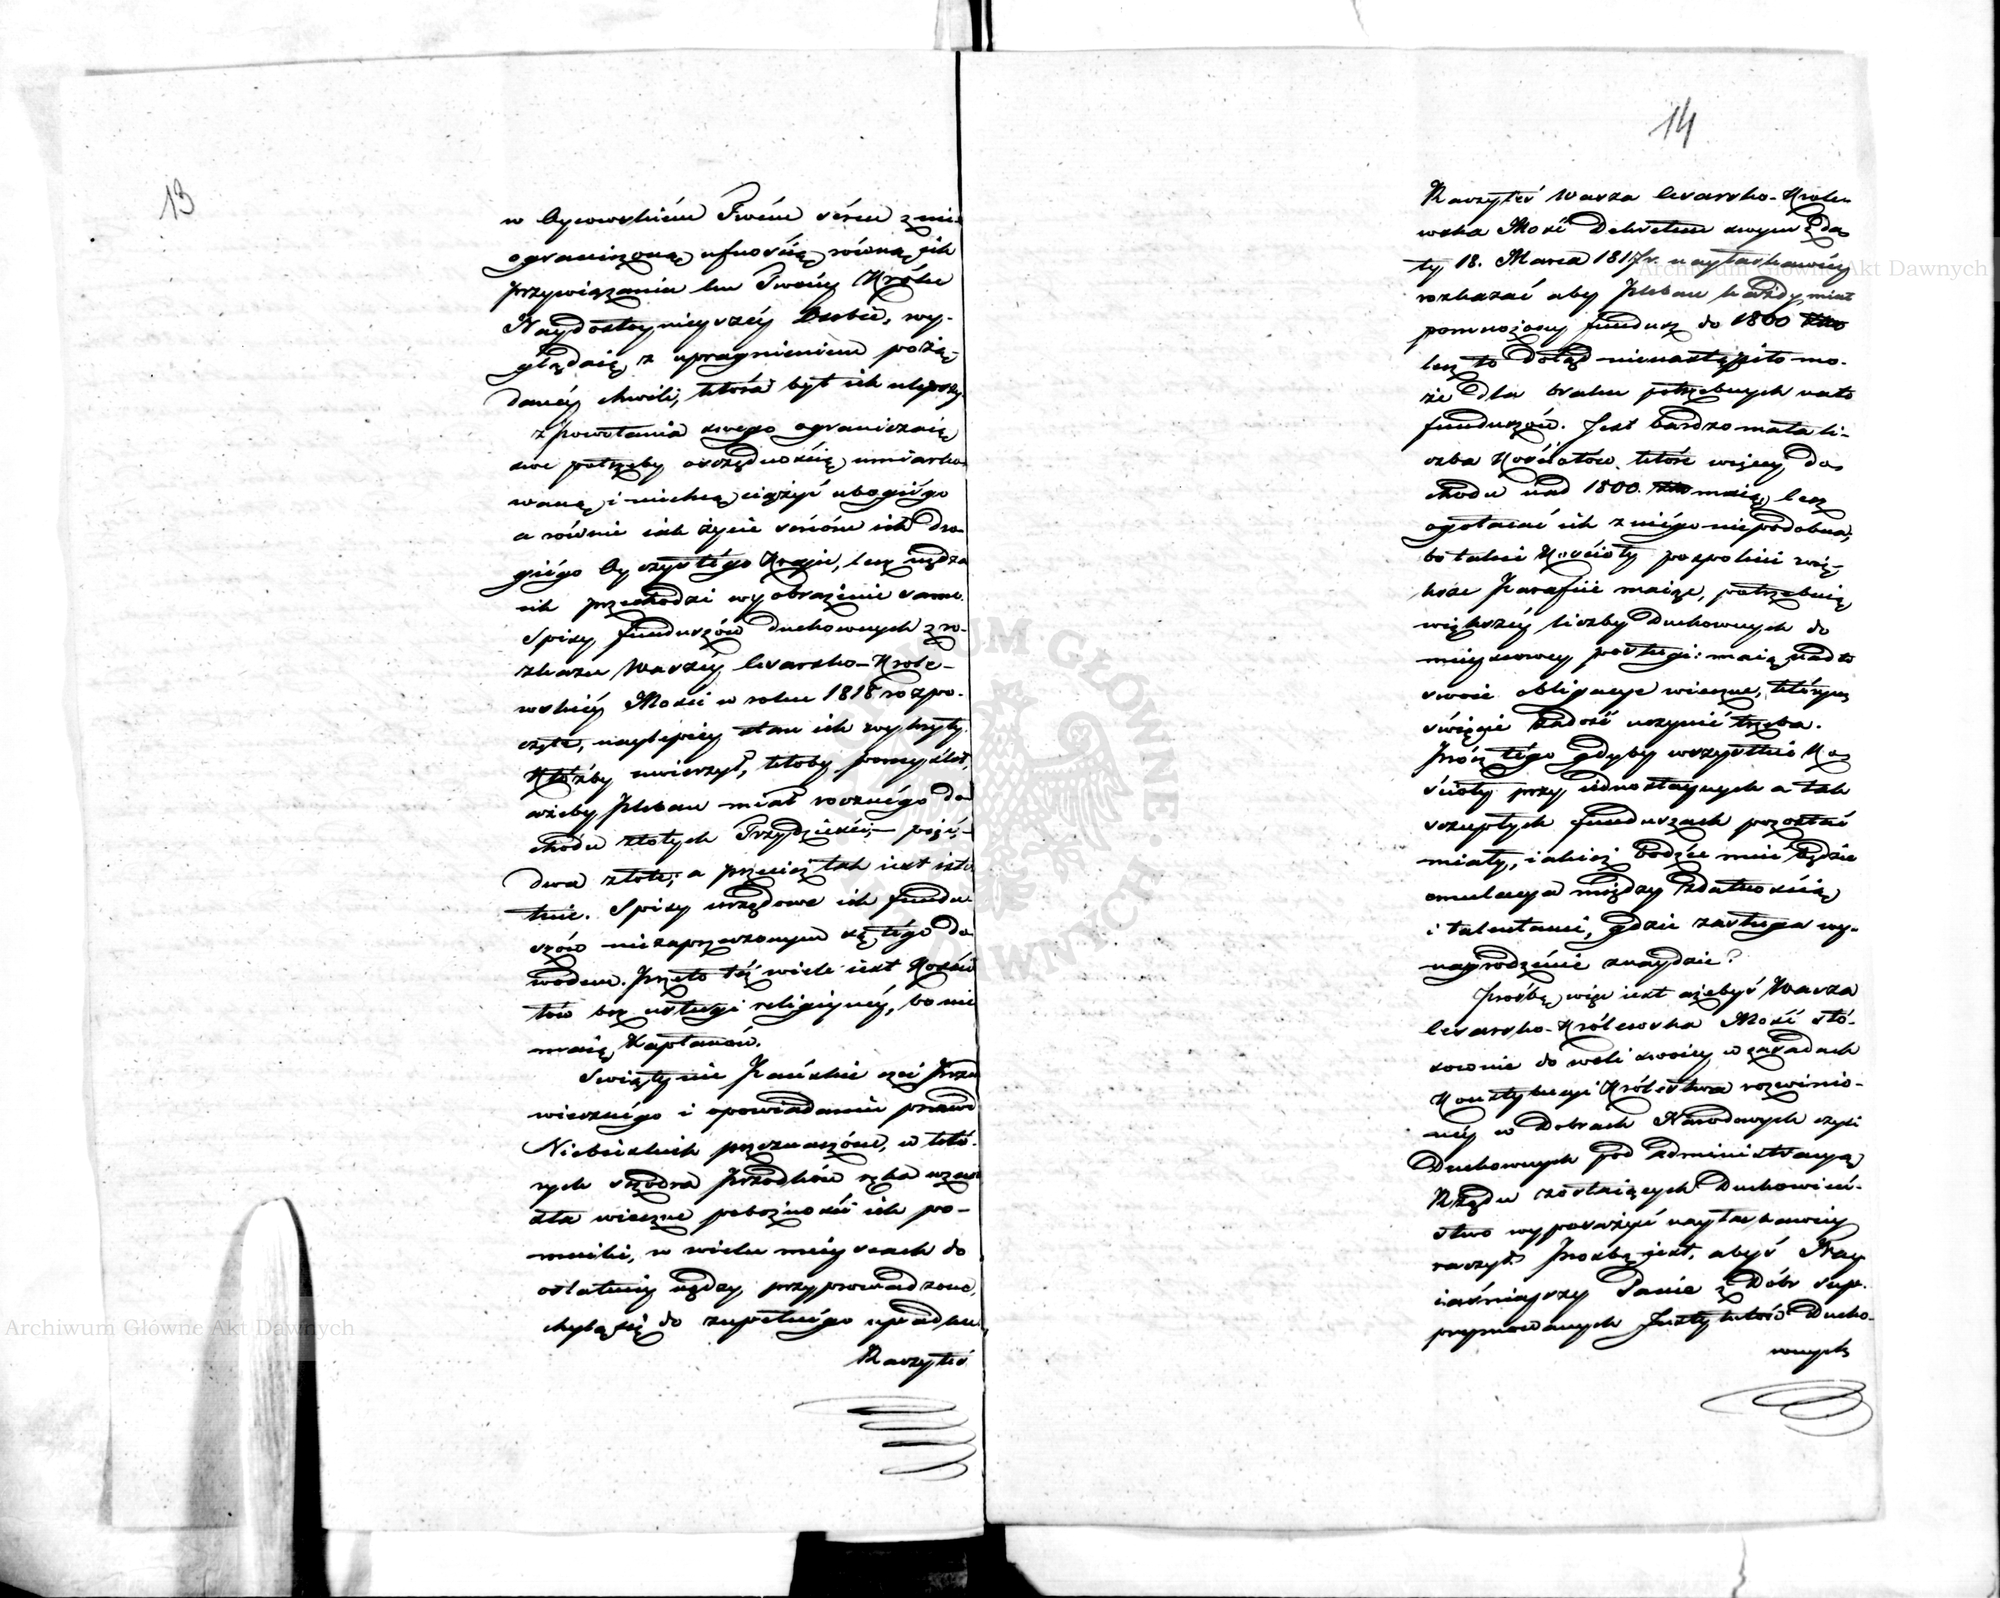 13
w Oycowskiém Twém sércu z nie-
ograniczoną ufnością równą jak
przywiązanie ku Twoiéy Królu
Naydostoynieyszéy Osobie, wy-
glądaią z upragnieniem pożą-
danéy chwili, która byt ich ulepszy
z powołania swego ograniczaią
swe potrzeby oszczędnością umiarko-
waną i niechcą ciążyć ubogiégo
a równie iak życie sercóm ich dro-
giégo Oyczystégo Kraju, lecz nędza
ich przechodzi wyobrażenie same.
Spisy funduszów duchownych z ro-
zkazu Waszéy Cesarsko-Króle-
wskiéy Mości w roku 1818 rozpo-
częte, naylepiéy stan ich wykryły.
Któżby uwierzył, ktoby pomyślał,
ażeby Pleban miał rocznégo do-
chodu złotych Trzydzieści,
dwa złote; a przecież tak iest isto-
tnie. Spisy urzędowe ich fundu-
szów niezaprzeczonym są tégo do-
wodem. Przeto téż wiele iest Kościo-
łów bez usługi religiynéy, bo nie
maią Kapłanów.
Swiątynie Pańskie czci Przed-
wiecznégo i opowiadaniu prawd
Niebieskich przeznaczóne, w któ-
rych szczodra Przodków ręka wznio-
sła wieczne pobożności ich po-
mniki, w wielu mieyscach do
ostatniéy nędzy przyprowadzone,
chylą się do zupełnégo upadku.
Raczyłeś
14
Raczyłeś Wasza Cesarsko-Króle-
wska Mość Dekretem swym z da-
ty 18. Marca 1817 r. nayłaskawiéy
rozkazać aby Pleban każdy miał
pomnożony fundusz do 1800
lecz to dotąd nienastąpiło mo-
że dla braku potrzebnych nato
funduszów. Jest bardzo mała li-
czba Kościołów, które więcéy do-
chodu nad 1800. maią, lecz
ogołacać ich z niégo niepodobna,
bo takie Kościoły pospolicie wię-
ksze Parafiie maiąc, potrzebuią
większéy liczby Duchownych do
mieyscowey posługi: maią nadto
swoie obligacye wieczne, którym
święcie zadość uczynić trzeba.
Prócz tégo gdyby wszystkie Ko-
ścioły przy iednostaynych a tak
szczupłych funduszach pozostać
miały, iakiéż bodźce mieć będzie
emulacya między zdatnością
i talentami, gdzie zasługa wy-
nagrodzénie znaydzie?
Proźbą więc iest ażebyś Wasza
Cesarsko-Królewska Mość stó-
sownie do woli swoiéy w zasadach
Konstytucyi Królestwa rozwinio-
néy w Dobrach Narodowych czyli
Duchownych pod administracyą
Rządu zostaiących Duchowień-
stwo wyposażyć nayłaskawiéy
raczył. Prozbą iest, abyś Nay-
iaśnieyszy Panie z Dóbr sup-
prymowanych Instytutów Ducho-
wnych